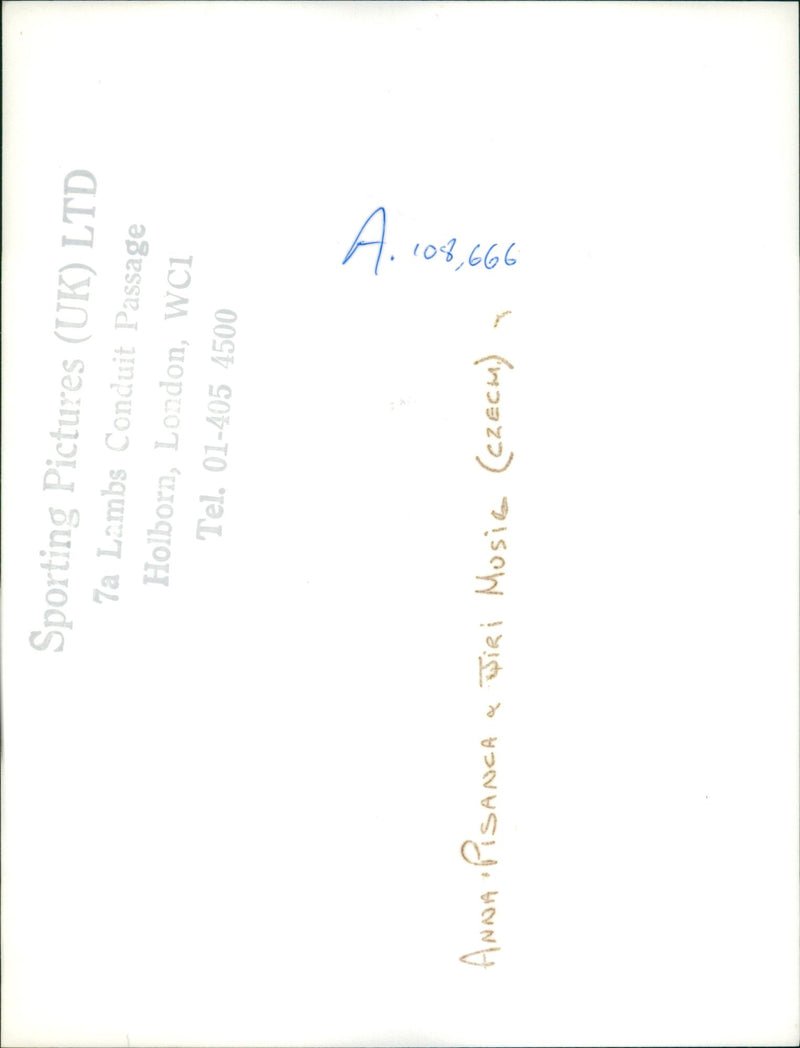 Sporting Pictures (UK) LTD
7a Lambs Conduit Passage
Holborn, London, WC1
Tel. 01-405 4500
A. 108,666
ANNA PISANCA & JIRI MUSIL (CZECH)